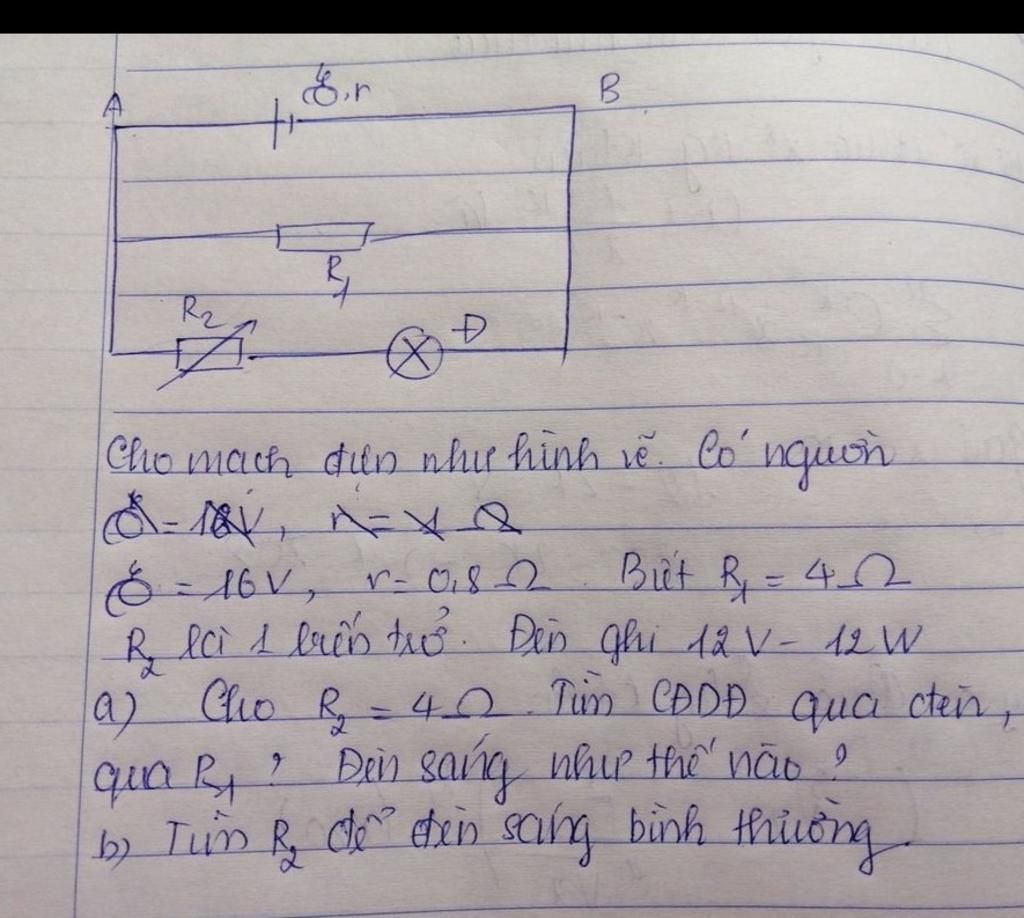 A
ℰ,r
B
R1
R2
Đ
Cho mạch điện như hình vẽ. Có nguồn
ℰ = 16V, r = 0,8 Ω. Biết R1 = 4Ω
R2 là 1 biến trở. Đèn ghi 12V - 12W
a) Cho R2 = 4Ω. Tìm CĐDĐ qua đèn,
qua R1? Đèn sáng như thế nào?
b) Tìm R2 để đèn sáng bình thường.